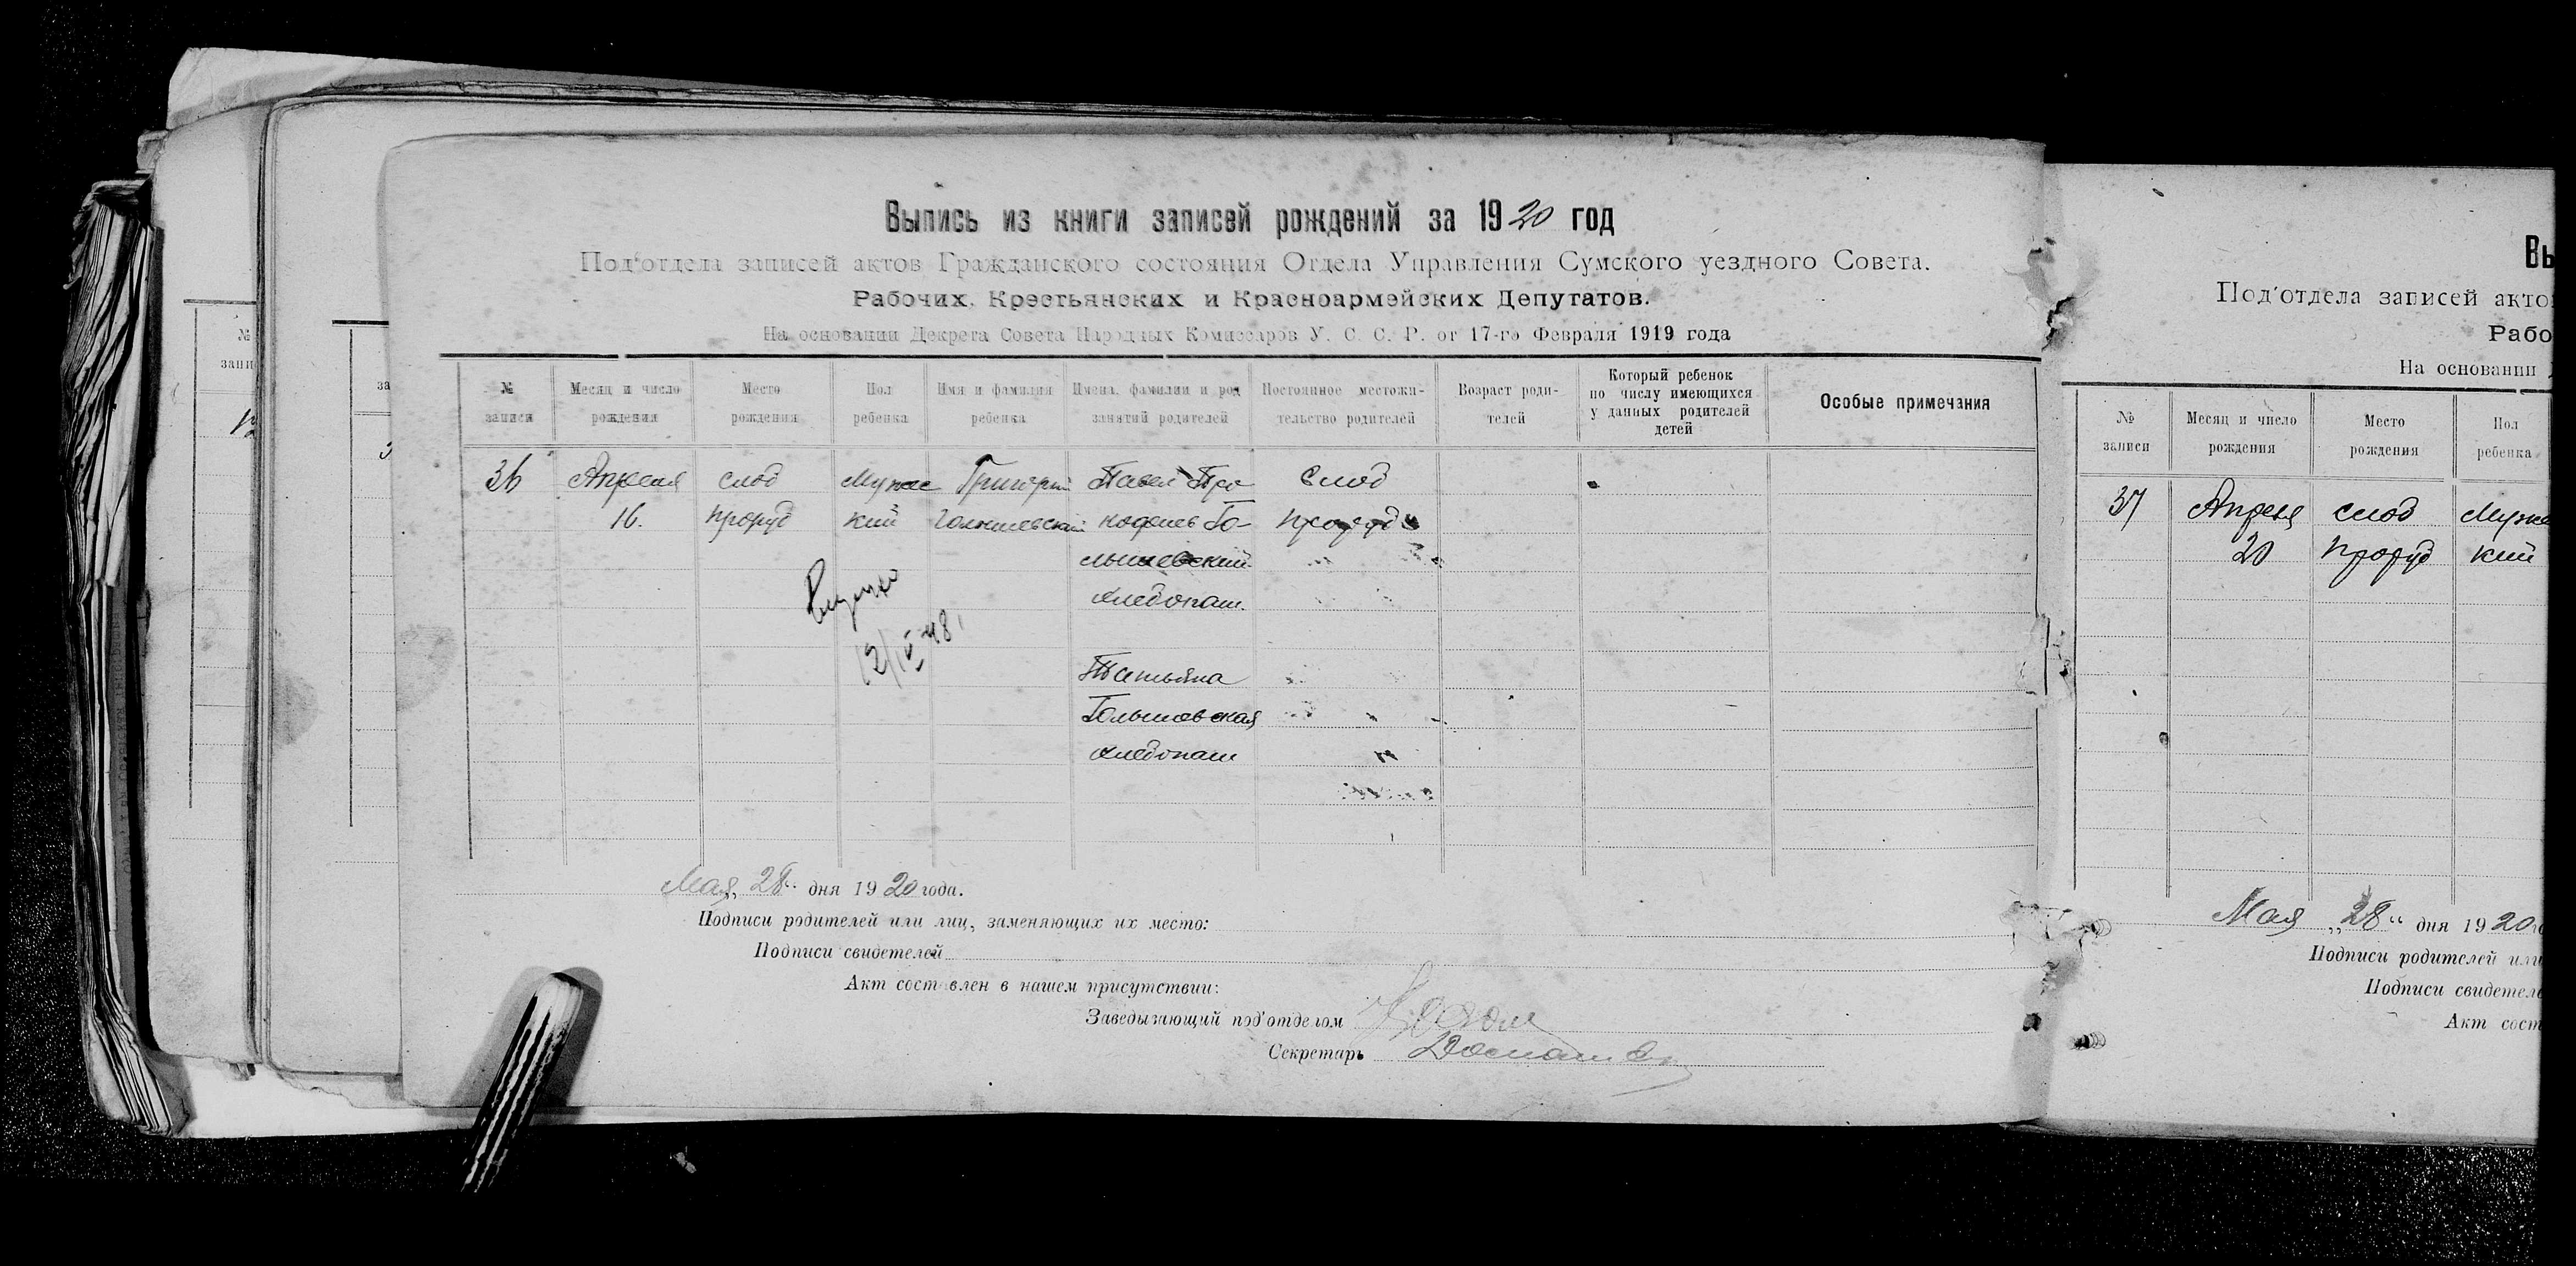 Выпись из книги записей рождений за 1920 год
Под'отдела записей актов Гражданского состояния Отдела Управления Сумского уездного Совета.
Рабочих, Крестьянских и Красноармейских Депутатов.
На основании Декрета Совета Народных Комиссаров У. С. С. Р. от 17-го Февраля 1919 года
№ записи
Месяц и число рождения
Место рождения
Пол ребенка
Имя и фамилия ребенка
Имена, фамилии и род занятий родителей
Постоянное местожительство родителей
Возраст родителей
Который ребенок по числу имеющихся у данных родителей детей
Особые примечания
36 Апреля слод Мужс Григорий Павел Про слод
16. Проруб кий Голышевский кофиев Го- Проруб
лышевский
хлебопаш.
12/IV 48
Татьяна
Голышевская
хлебопаш
Мая „28" дня 1920 года.
Подписи родителей или лиц, заменяющих их место:
Подписи свидетелей
Акт сост влен в нашем присутствии:
Заведывающий под'отделом
Секретарь
Вы
Под'отдела записей акто
Рабо
На основании
№ записи
Месяц и число рождения
Место рождения
Пол ребенка
37 Апреля слод Мужс
20 Проруб кий
Мая „28" дня 1920
Подписи родителей или
Подписи свидетеле
Акт сост
№
запи
за